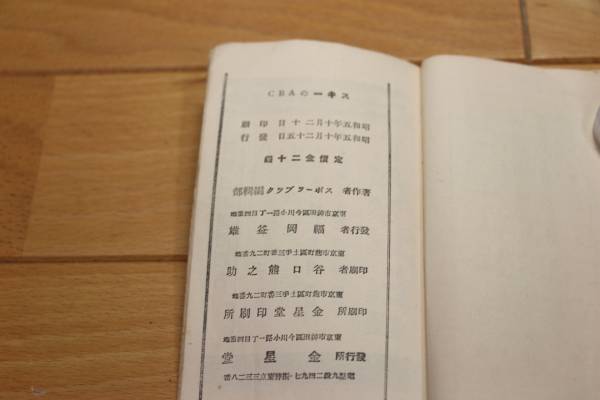 スキーのABC
昭和五年十月二十日 印刷
昭和五年十月二十五日 發行
定價金二十錢
著作者 スポーツクラブ編輯部
東京市神田區今川小路一丁目四番地
發行者 福岡益雄
東京市麹町區土手三番町二九番地
印刷者 谷口熊之助
東京市麹町區土手三番町二九番地
印刷所 金星堂印刷所
東京市神田區今川小路一丁目四番地
發行所 金星堂
電話九段二四九七・振替東京三三二八番